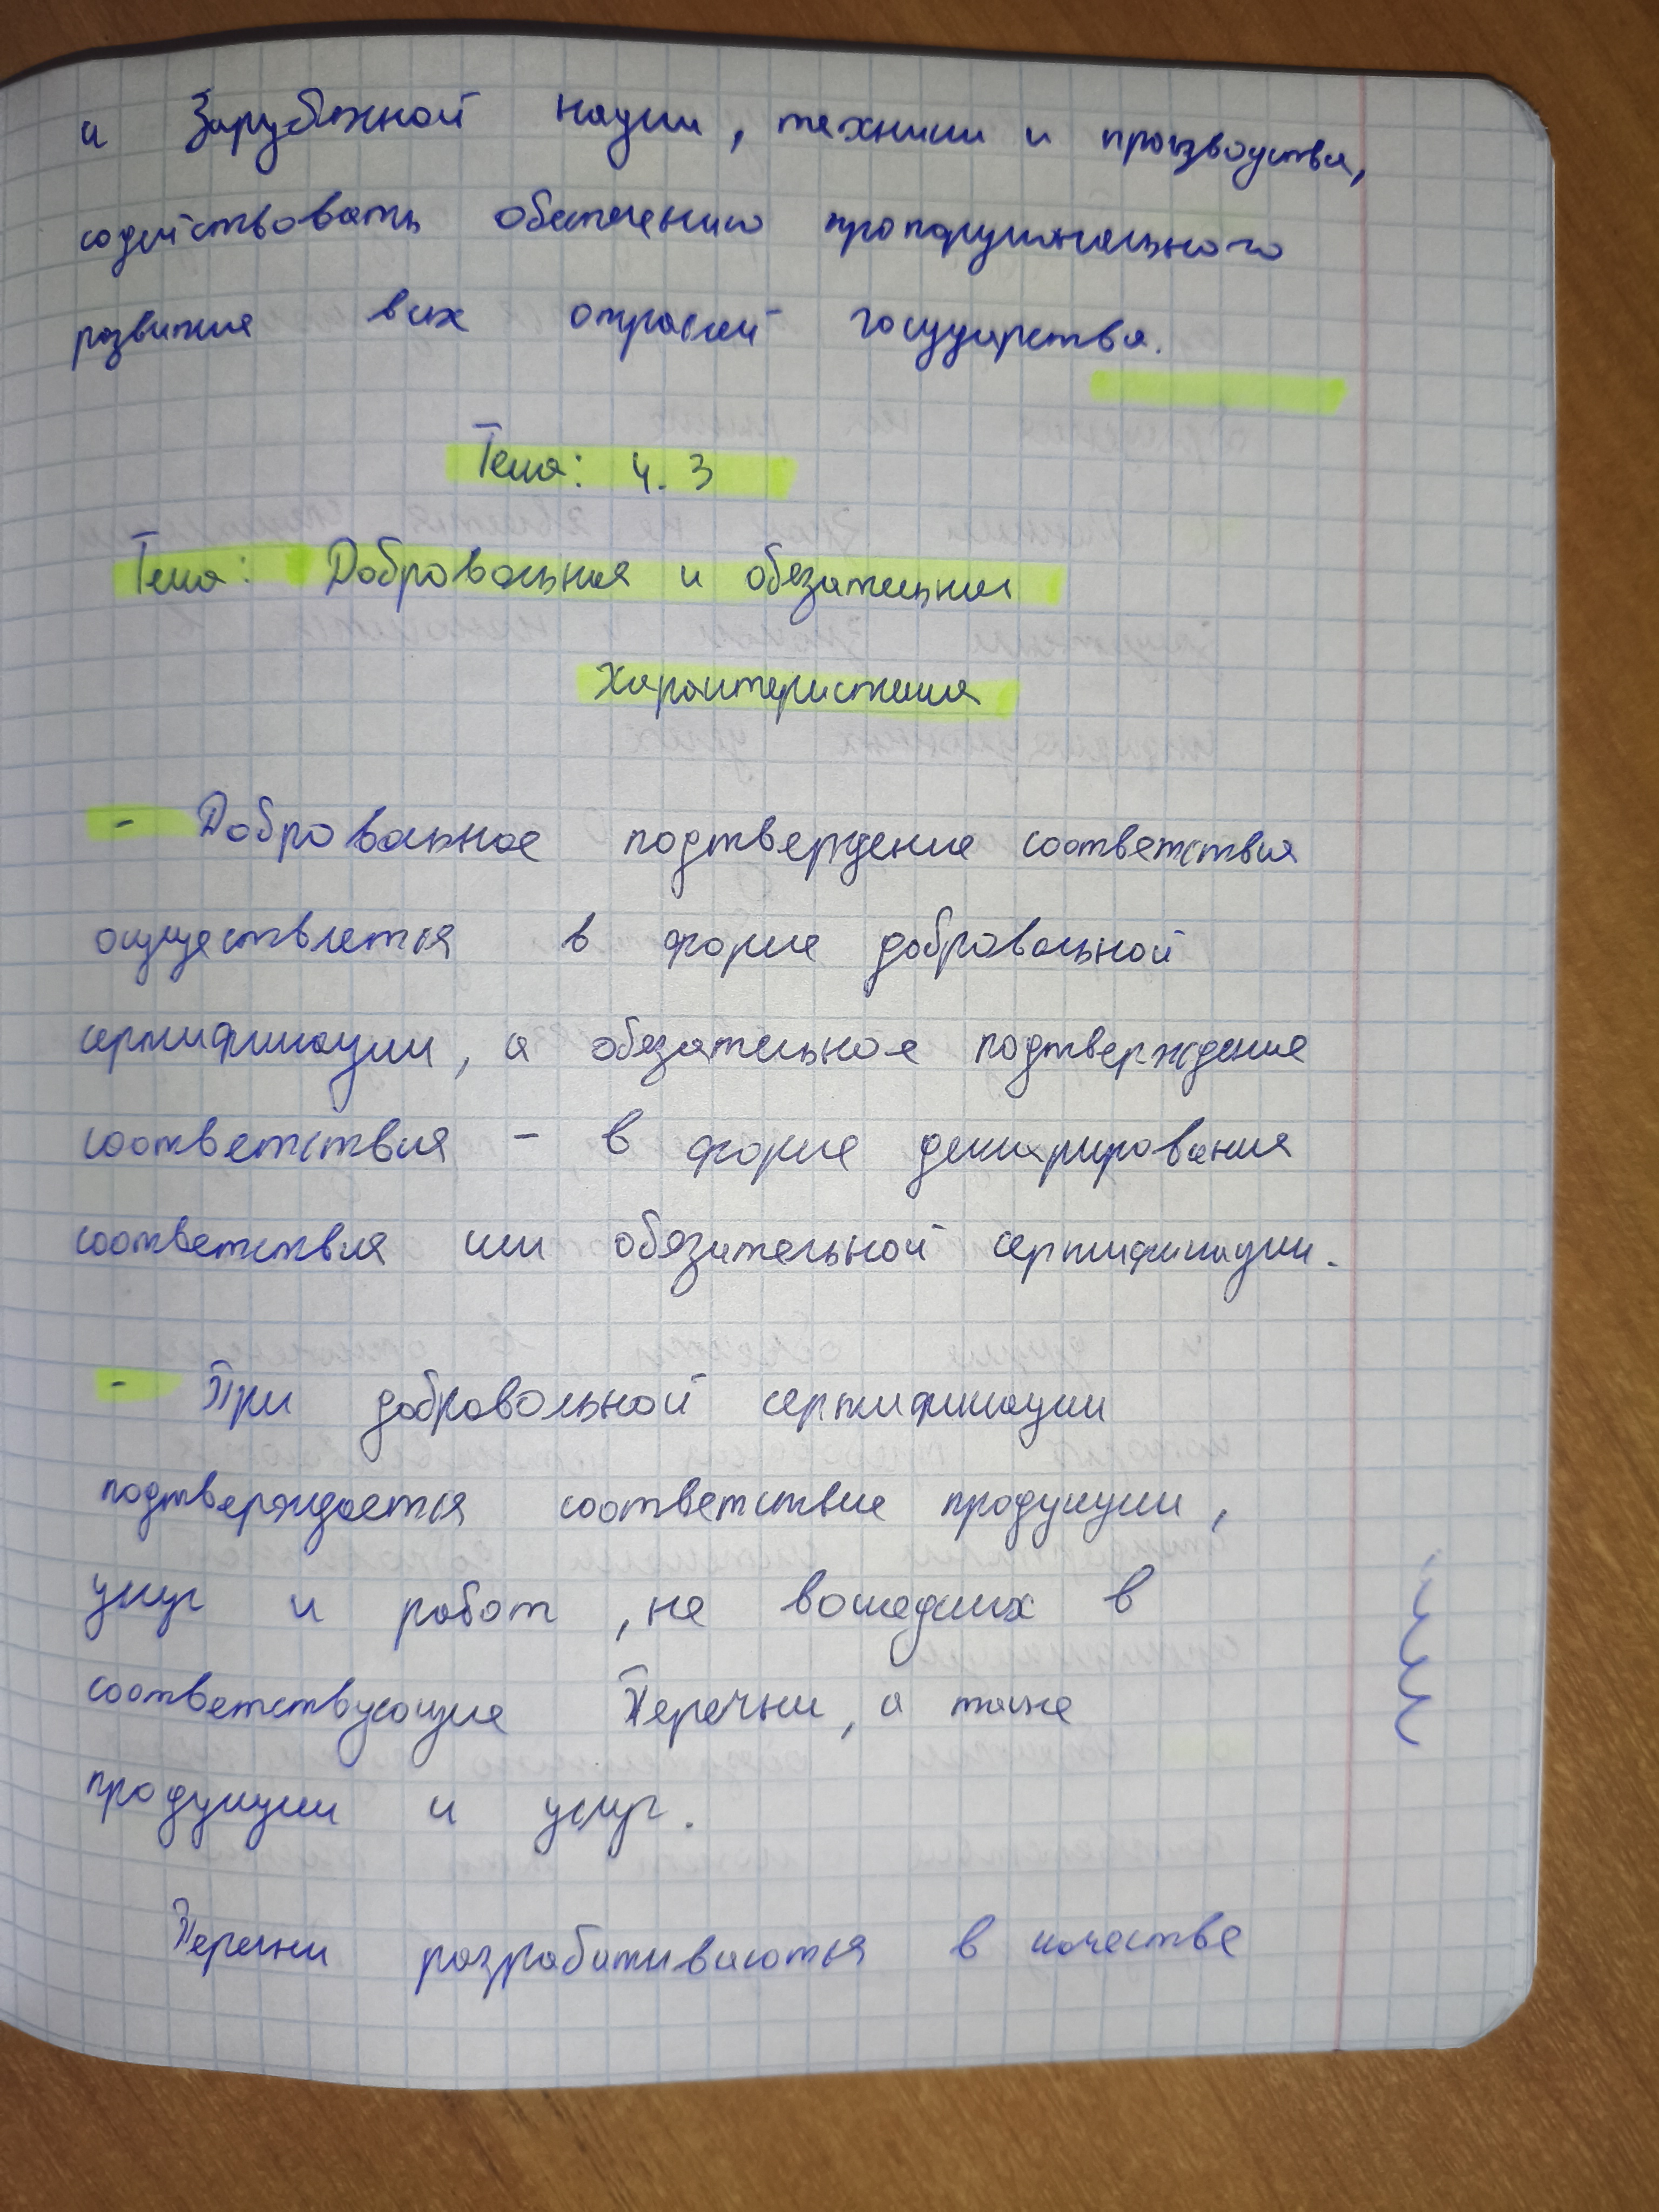 и Зарубежной науки, техники и производства,
содействовать обеспечению пропорционального
развития всех отраслей государства.
Тема: 4.3
Тема: Добровольная и обязательная
Характеристика
- Добровольное подтверждение соответствия
осуществляется в форме добровольной
сертификации, а обязательное подтверждение
соответствия - в форме декларирования
соответствия или обязательной сертификации.
- При добровольной сертификации
подтверждается соответствие продукции,
услуг и работ, не вошедших в
соответствующие Перечни, а также
продукции и услуг.
Перечни разрабатываются в качестве